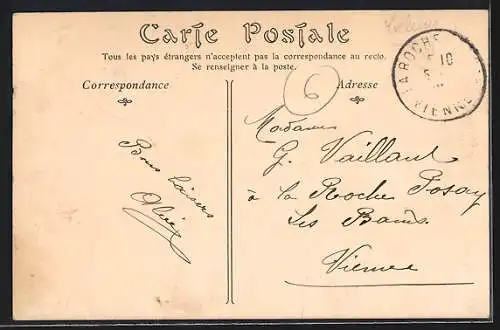 Carte Postale
Tous les pays étrangers n'acceptent pas la correspondance au recto.
Se renseigner à la poste.
Correspondance
Adresse
6
LAROCHE
10
VIENNE
Bons baisers
Madame
G. Vaillant
à la Roche Posay
Les Bains.
Vienne